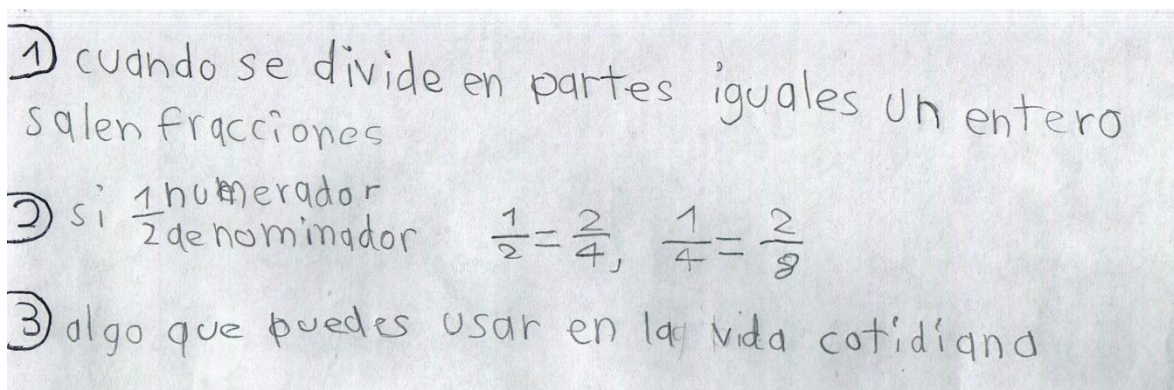 ① cuando se divide en partes iguales un entero
salen fracciones
② si 1/2 numerador denominador 1/2 = 2/4, 1/4 = 2/8
③ algo que puedes usar en la vida cotidiana